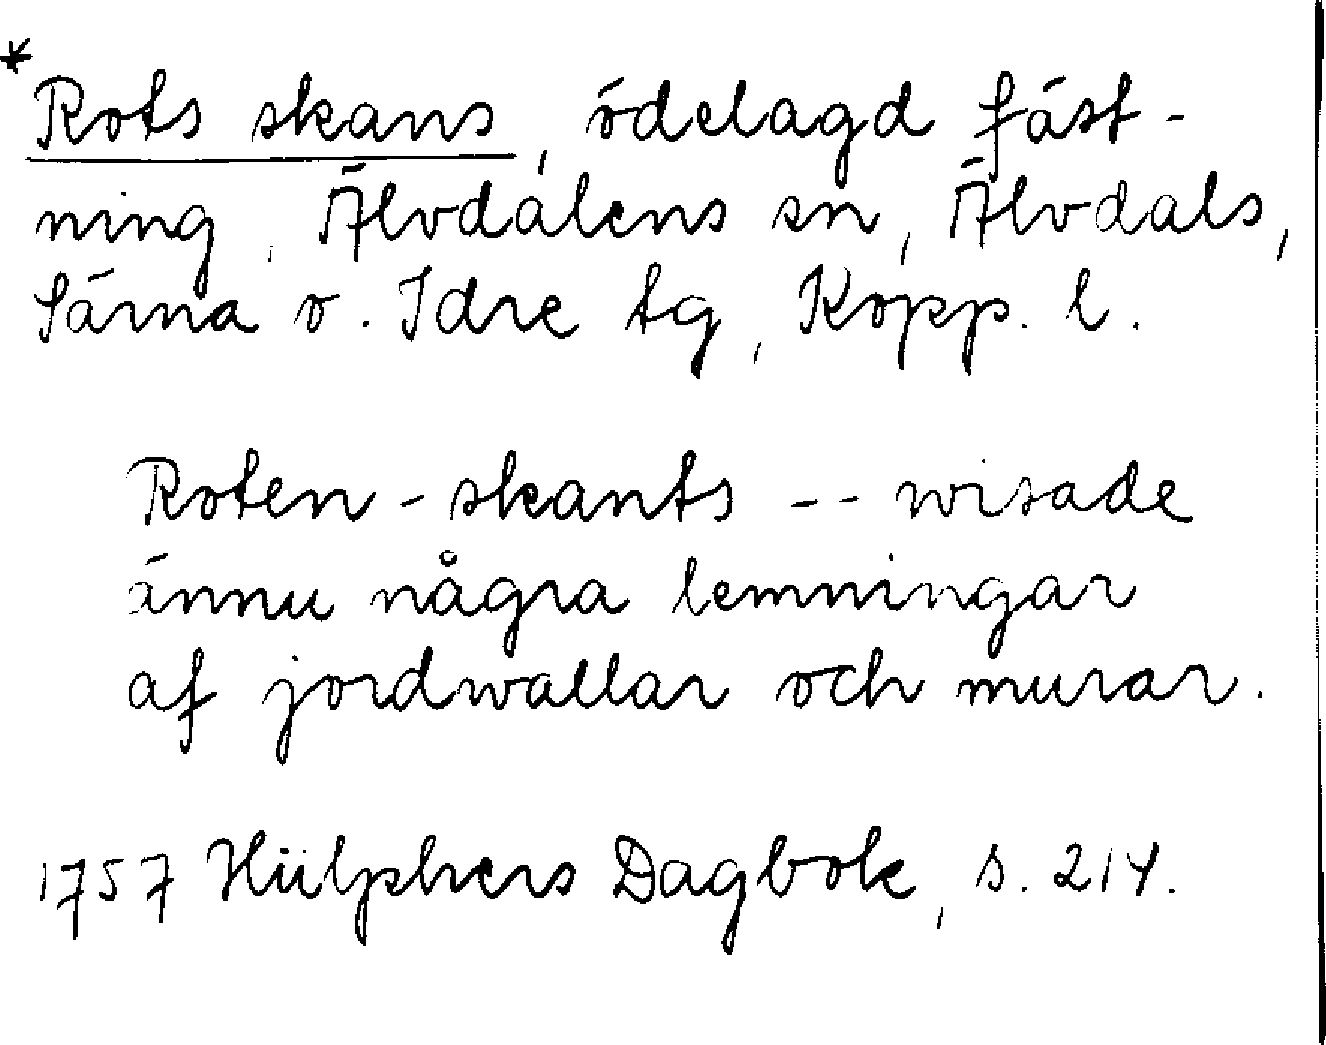 * Rots skans, ödelagd fäst-
ning, Älvdalens sn, Älvdals,
Särna o. Idre tg, Kopp. l.
Roten-skants -- wisade
ännu några lemningar
af jordwallar och murar.
1757 Hülphers Dagbok, s. 214.